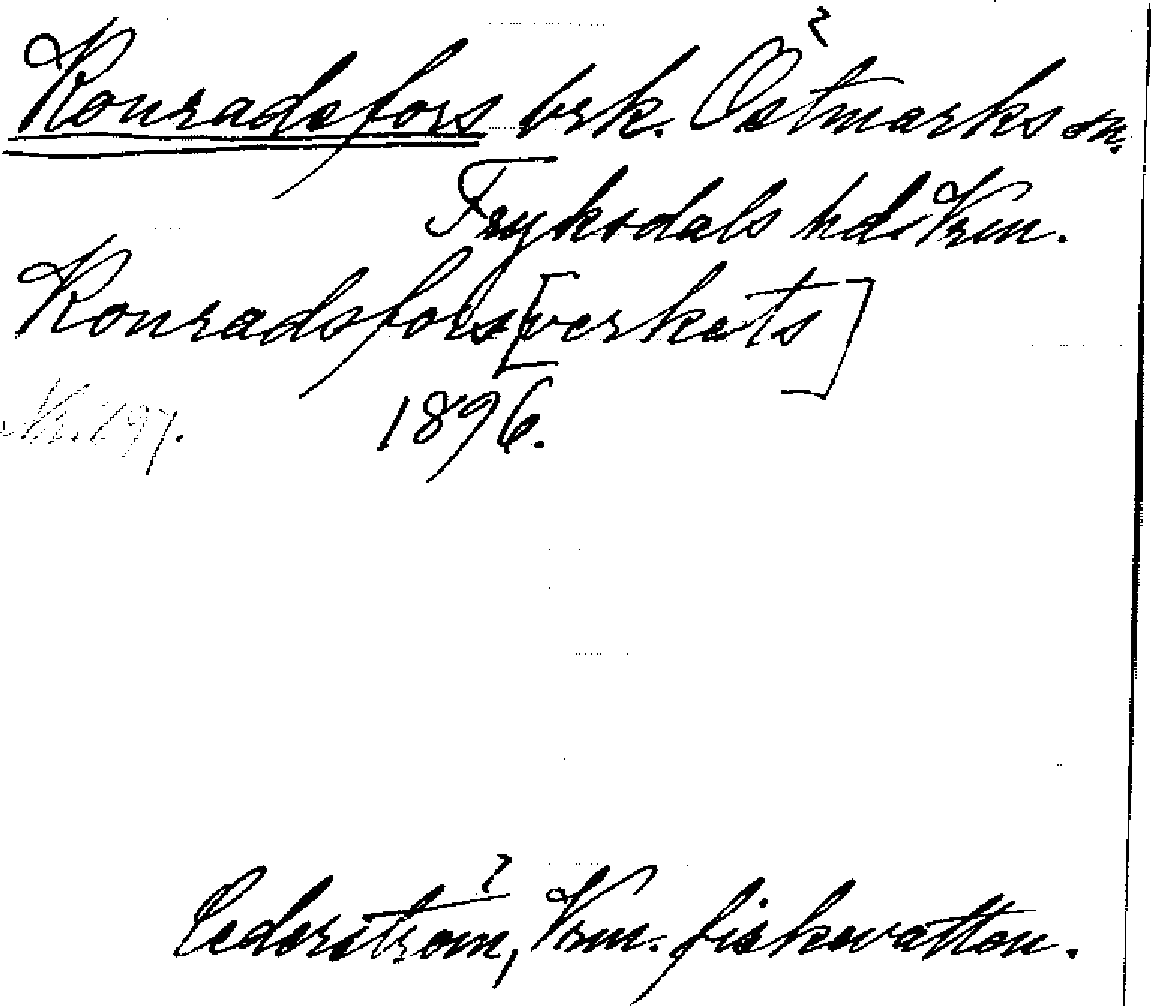 Konradsfors brk. Östmarks sn.
Fryksdals hd. Vrm.
Konradsfors[verkets]
1896.
Cederström, Vrm. fiskevatten.